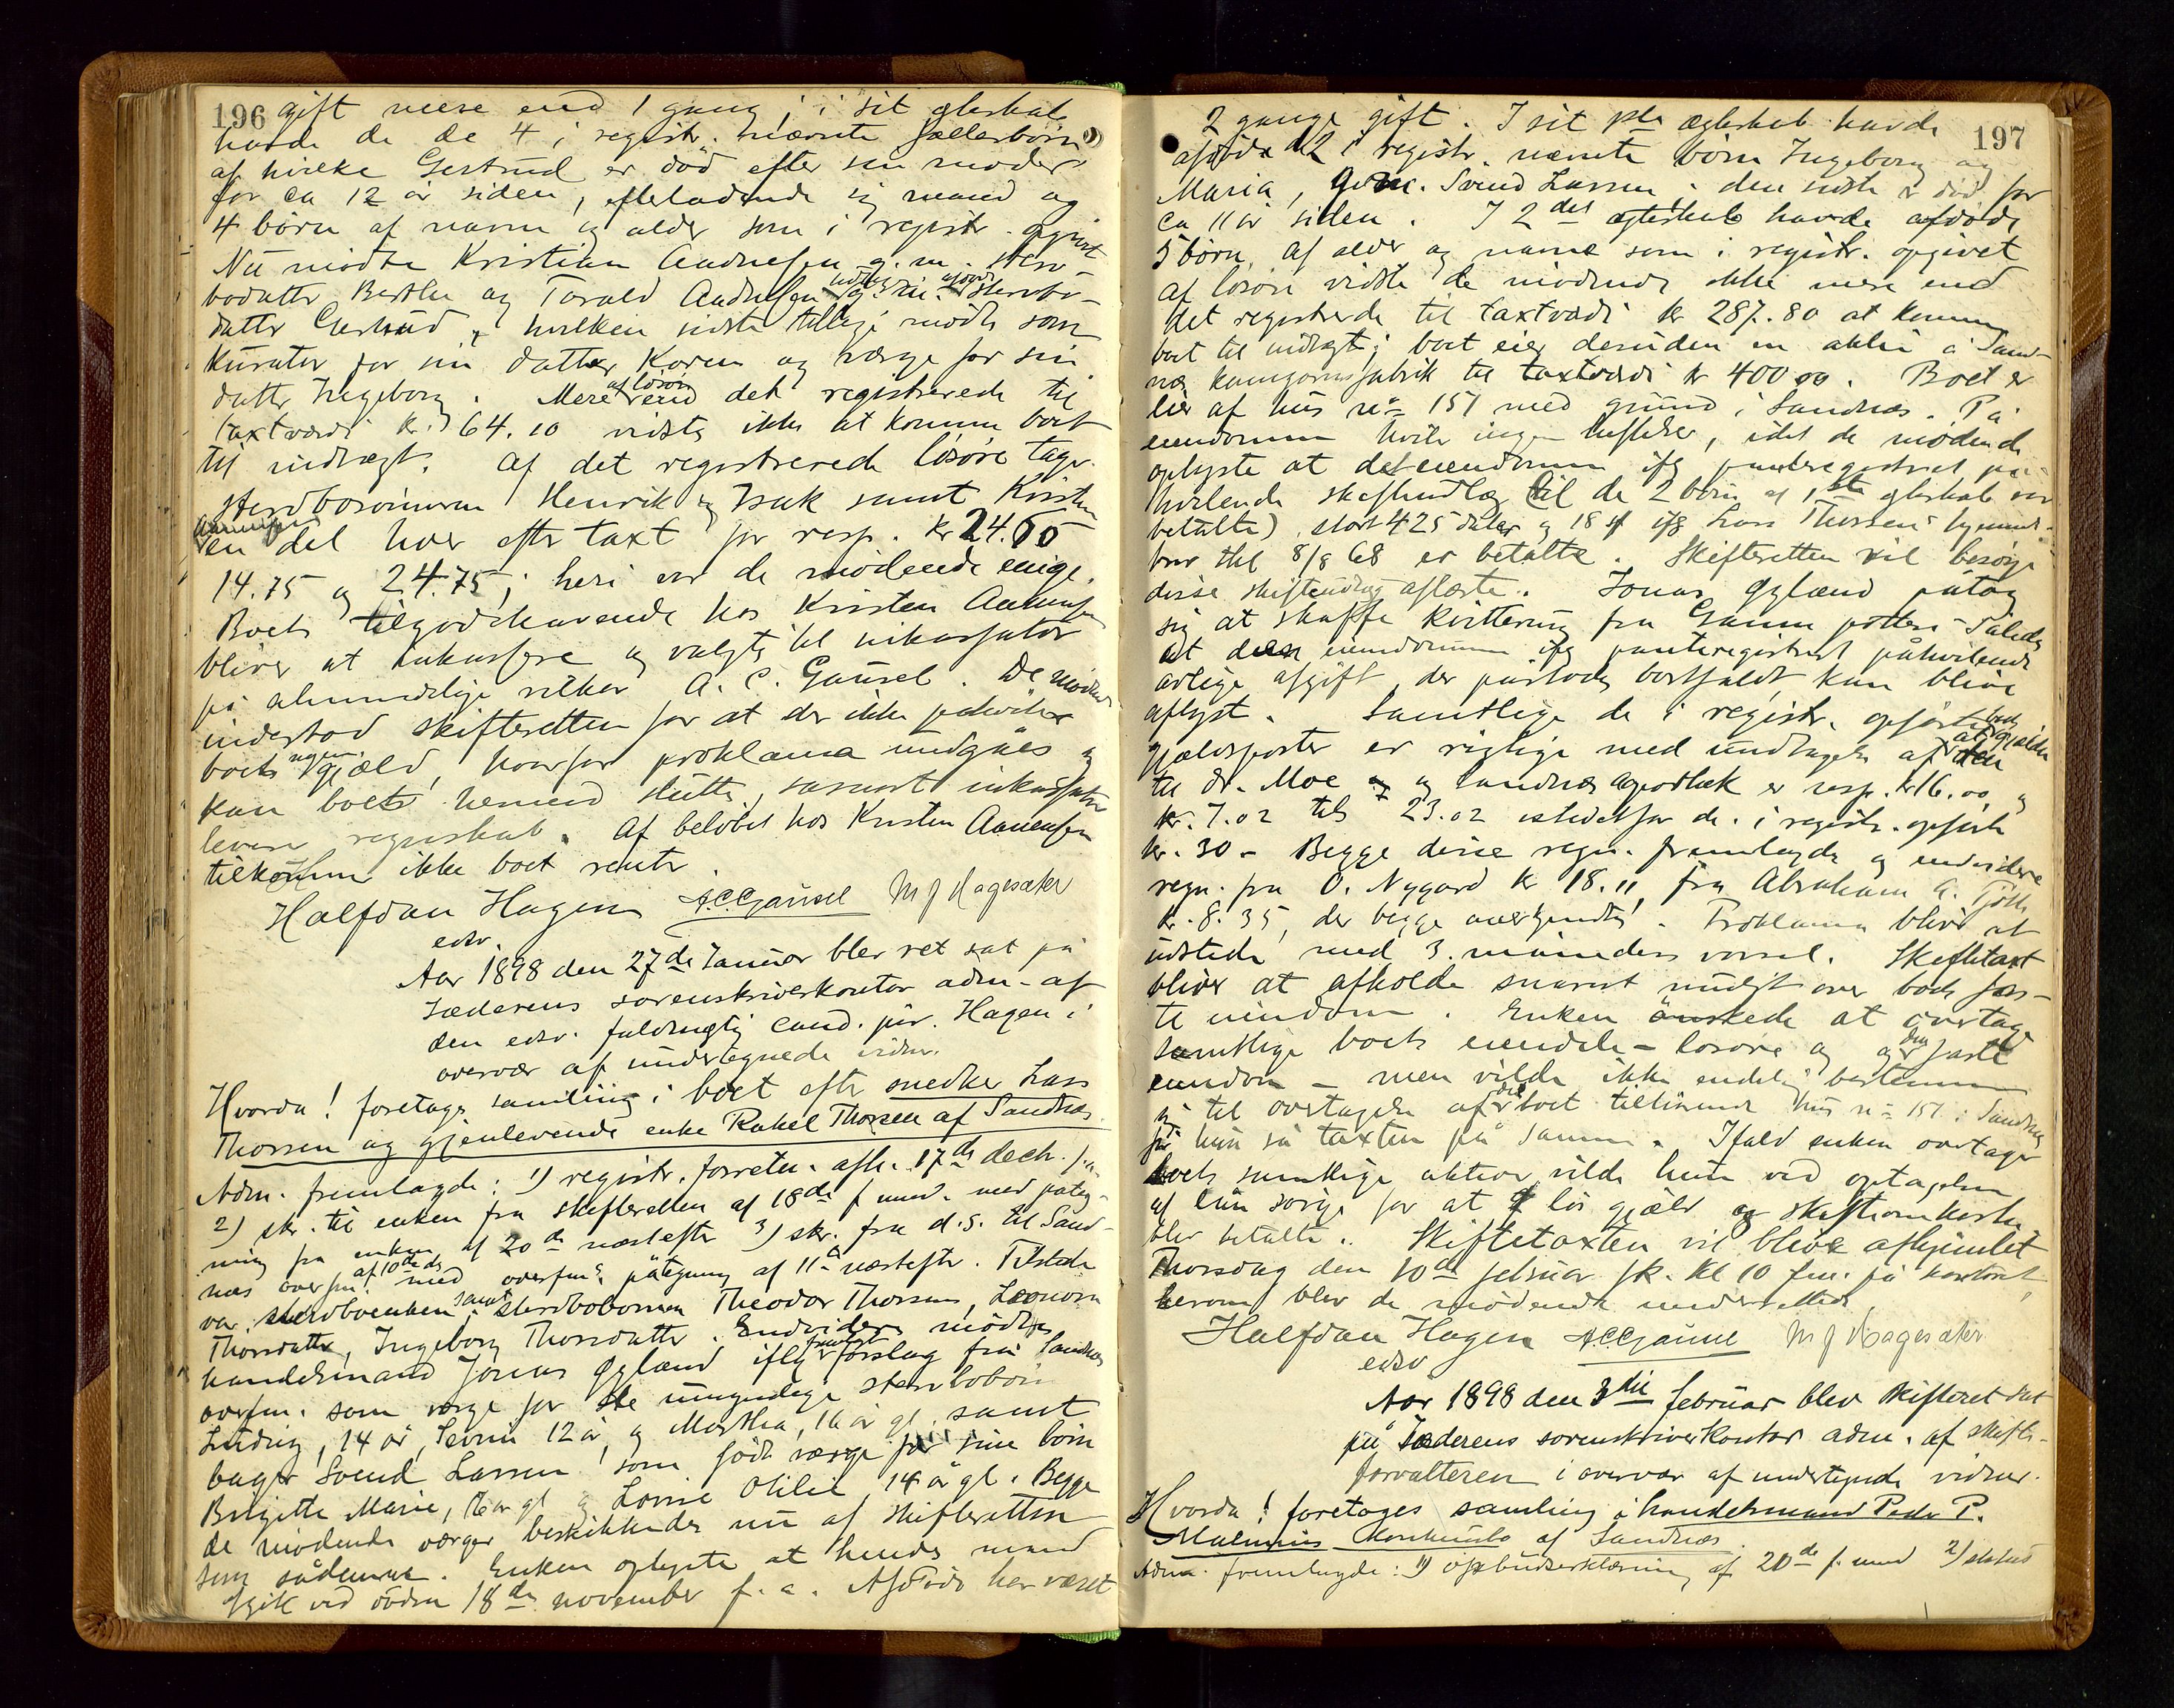 196
gift mere end 1 gang; i sit ægteskab
havde de de 4 i registr. nævnte fællesbørn
af hvilke Gertrud er död efter sin moder
for ca 12 år siden, efterladende sig mand og
4 börn af navn og alder som i registr. opgivet
Nu mödte Kristian Andersen g. m. sterv-
bodatter Berthe og Torald g. m. afdöde stervbo-
datter Gertrud, hvilken sidste tillige mödte som
kurator for sin datter Karen og værge for sin
datter Ingeborg. Mere af lösöre end det registrerede til
taxtværdi kr. 64.10 vidstes ikke at komme boet
til indtægt. Af det registrerede lösöre tager
Henrik og Isak samt Kristen
en del hver efter taxt for resp. kr 24.60
14.75 og 24.75; heri var de mödende enige.
Boets tilgodehavende hos Kristen Aanensen
bliver at inkassere og valgtes til inkassator
på almindelige vilkår A. C. Gausel. De mödende
indestod skifteretten for at der ikke påhviler
boets nogen gjæld, hvorfor proklama undgåes og
kan boets hermed slutte, såsnart inkassator
levere regnskab. Af belöbet hos Kristen Aanensen
tilkommer ikke boet rente.
Halfdan Hagen A.C.Gausel M J Hagesæter
edsv.
Aar 1898 den 27de Januar blev ret sat på
Jæderens sorenskriverkontor adm. af
den edsv. fuldmægtig cand. jur. Hagen i
overvær af undertegnede vidner.
Hvorda! foretages samling i boet efter snedker Lars
Thorsen og gjenlevende enke Rakel Thorsen af Sandnæs
Adm. fremlagde: 1) registr. forretn. afh. 17de decb. f.a.
2) skr. til enken fra skifteretten af 18de f. med påteg-
ning fra enken af 20de næstefter 3) skr. fra d.s. til Sand-
næs overfm. af 10de ds med overfms. påtegning af 11te næstefter. Tilstede
var stervboenken samt Theodor Thorsen,
Thorsdatter, Ingeborg Thorsdatter. Endvidere mödte
handelsmand Jonas Gyland ifölge forslag fra Sandnæs
overfm. som værge for de umyndige stervbobörn
14 år, Severin 12 år og Martha, 16 år gl. samt
bager Svend Larsen som födt værge for sine börn
Birgitte Marie, år gl og Lovise Otilie 14 år gl. Begge
de mödende værger beskikkedes nu af skifteretten
som sådanne. Enken oplyste at hendes mand
afgik ved döden 18de november f. a. Afdöde har været
197
2 gange gift. I sit 1ste ægteskab havde
afdöde de 2 i registr. nævnte börn Ingeborg og
Maria, g. m. Svend Larsen. den sidste er död for
ca 11 år siden. I 2det ægteskab havde afdöde
5 börn af alder og navne som i registr. opgivet
Af lösöre vidste de mödende ikke mere end
det registrerede til taxtværdi kr 287.80 at komme
boet til indtægt; boet eier desuden en aktie i Sand-
næs kamgarnsfabrik til taxtværdi kr 400.00. Boet er
eier af hus no 151 med grund i Sandnæs. På
eiendommen hviler ingen heftelser, idet de mödende
oplyste at det eiendommen ifg panteregistret på-
hvilende skifteudlæg til de 2 börn af 1ste ægteskab
stort 425 daler og 18 sk ifg Lars Thorsens
brev thl 8/8 68 er betalte. Skifteretten vil besörge
disse skifteudlæg aflæste. Jonas Gyland påtog
sig at skaffe kvittering fra Gann
at den eiendommen ifg panteregistret påhvilende
årlige afgift, der påstodes bortfaldt, kan blive
aflyst. Samtlige de i registr. opförte
gjældsposter er rigtige med undtagelse af at gjælden
til dr. Moe og Sandnæs apothek er resp. kr 16.00 og
kr. 7.02 tils 23.02 istedetfor de i registr. opförte
kr. 30 - Begge disse regn. fremlagdes og endvidere
regn. fra O. Nygard kr 18.11, fra Abraham
kr. 8.35, der begge anerkjendtes. Proklama bliver at
udstede med 3 måneders varsel. Skiftetaxt
bliver at afholde snarest muligt over boets fas-
te eiendom. Enken önskede at overtage
samtlige boets eiendele - lösöre og den faste
eiendom - men vilde ikke endelig bestemme
sig til overtagelse af det boet tilhörende hus no 151 i Sandnæs
för hun så taxten på samme. Ifald enken overtager
boets samtlige aktiver, vilde hun ved optagelse
af lån sörge for at lös gjæld og skifteomkostn.
blev betalte. Skiftetaxten vil blive afhjemlet
Thorsdag den 10de februar fk. kl 10 fm. på kontoret,
herom blev de mödende underrettede
Halfdan Hagen A.C.Gausel M J Hagesæter
edsv
Aar 1898 den 3die februar blev skifteret sat
på Jæderens sorenskriverkontor adm. af skifte-
forvalteren i overvær af undertegnede vidner.
Hvorda! foretages samling i handelsmand Peder P.
Malmins konkursbo af Sandnæs.
Adm. fremlagde: 1) opbudserklæring af 20de f. md 2) status